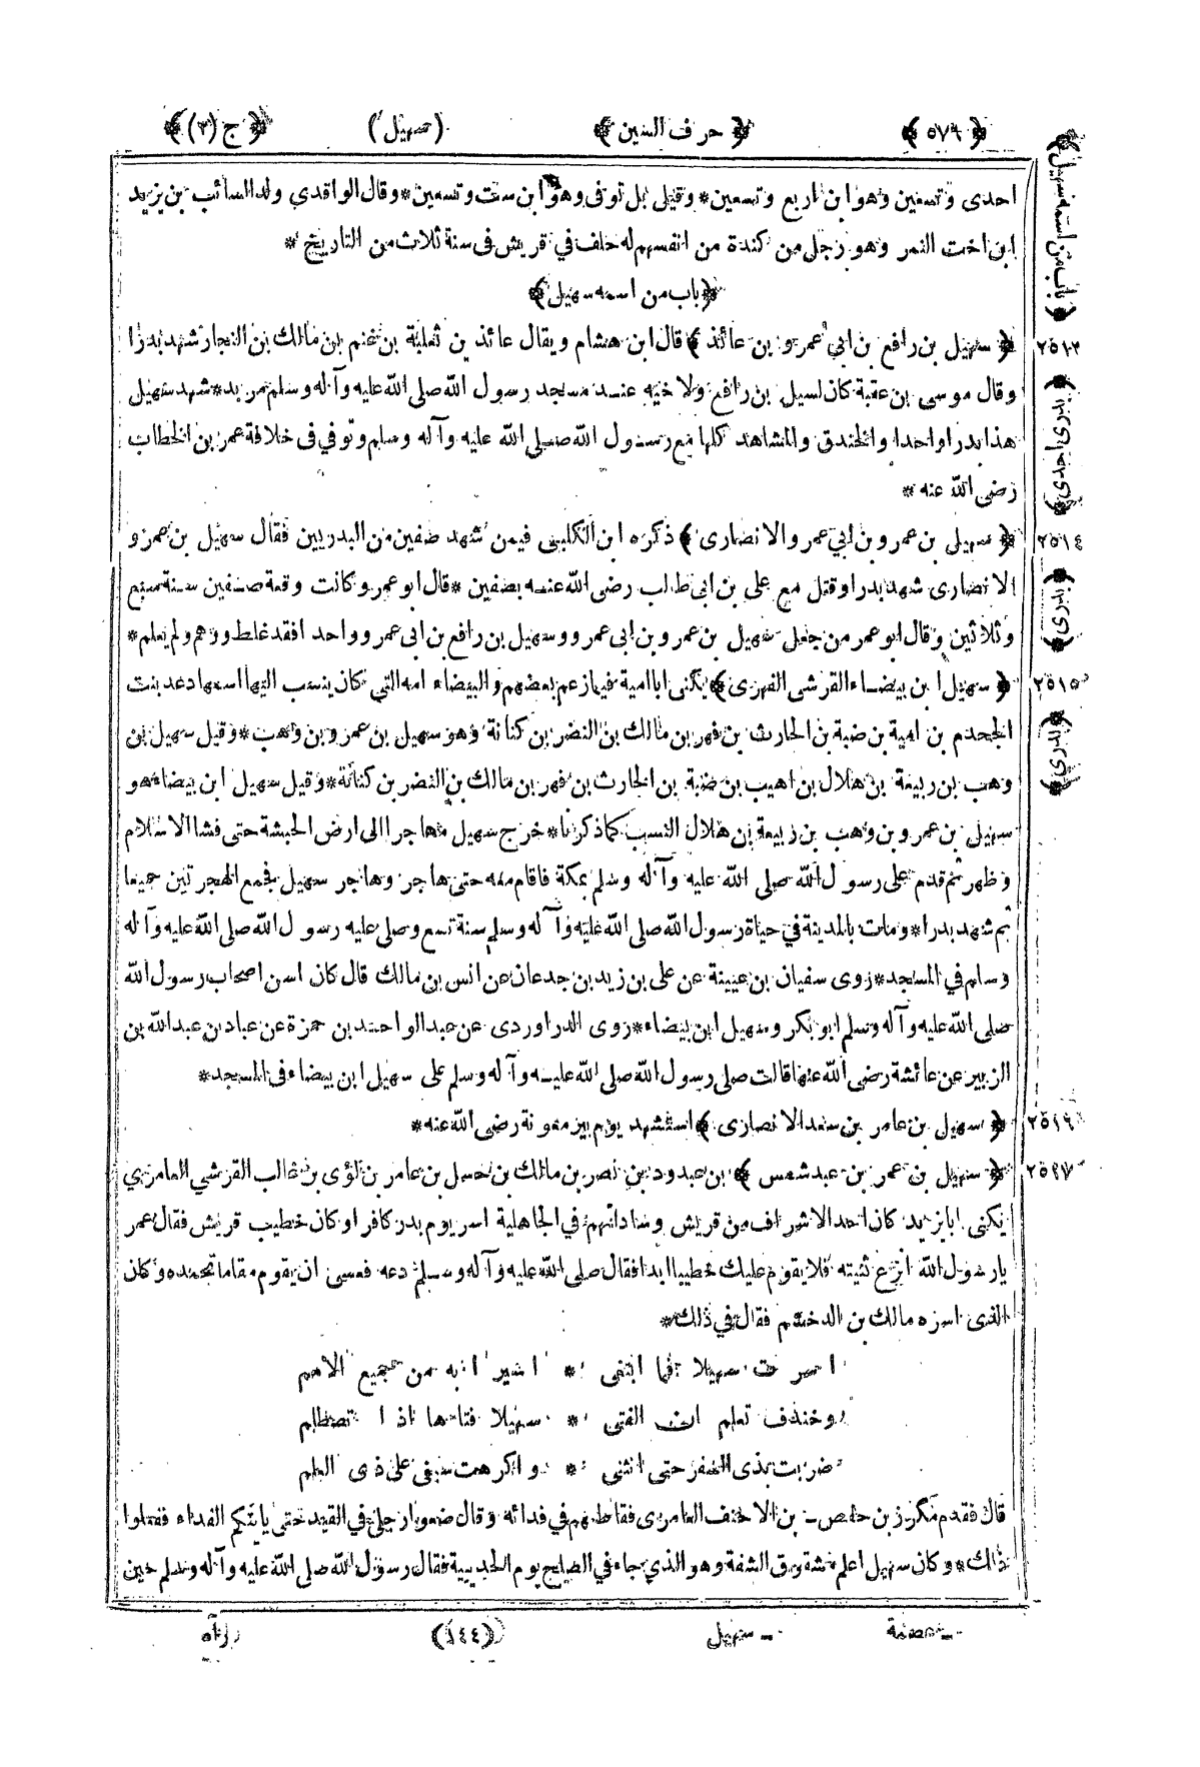 ﴿ ٥٧٦ ﴾ ﴿ حرف السين ﴾ (سهيل) ﴿ ج (٢) ﴾
احدى وتسعين وهو ابن اربع وتسعين * وقيل بل توفى وهو ابن ست وتسعين * وقال الواقدي ولد السائب بن يزيد
ابن اخت النمر وهو رجل من كندة من انفسهم له حلف في قريش فى سنة ثلاث من التاريخ *
﴿ باب من اسمه سهيل ﴾
﴿ باب من اسمه سهيل ﴾
٢٥١٣ ﴿ سهيل بن رافع بن ابي عمرو بن عائذ ﴾ قال ابن هشام ويقال عائذ بن ثعلبة بن غنم بن مالك بن النجار شهد بدرا
وقال موسى بن عقبة كان لسيل بن رافع ولاخيه عند مسجد رسول الله صلى الله عليه وآله وسلم مربد * شهد سهيل
هذا بدرا واحدا والخندق والمشاهد كلها مع رسول الله صلى الله عليه وآله وسلم وتوفي فى خلافة عمر بن الخطاب
رضى الله عنه *
﴿ بدرى احدى ﴾
٢٥١٤ ﴿ سهيل بن عمرو بن ابي عمرو الانصارى ﴾ ذكره ابن الكلبى فيمن شهد صفين من البدريين فقال سهيل بن عمرو
الانصارى شهد بدرا وقتل مع على بن ابى طالب رضى الله عنه بصفين * قال ابو عمر وكانت وقعة صفين سنة سبع
وثلاثين وقال ابو عمر من جعل سهيل بن عمرو بن ابى عمرو وسهيل بن رافع بن ابى عمرو واحدا فقد غلط ووهم ولم يعلم *
﴿ بدرى ﴾
٢٥١٥ ﴿ سهيل ابن بيضاء القرشى الفهرى ﴾ يكنى ابا امية فيما زعم بعضهم والبيضاء امه التي كان ينسب اليها اسمها دعد بنت
الجحدم بن امية بن ضبة بن الحارث بن فهر بن مالك بن النضر بن كنانة وهو سهيل بن عمرو بن وهب * وقيل سهيل بن
وهب بن ربيعة بن هلال بن اهيب بن ضبة بن الحارث بن فهر بن مالك بن النضر بن كنانة * وقيل سهيل ابن بيضاء هو
سهيل بن عمرو بن وهب بن ربيعة بن هلال النسب كما ذكرنا * خرج سهيل مهاجرا الى ارض الحبشة حتى فشا الاسلام
وظهر ثم قدم على رسول الله صلى الله عليه وآله وسلم بمكة فاقام معه حتى هاجر وهاجر سهيل فجمع الهجرتين جميعا
ثم شهد بدرا * ومات بالمدينة في حياة رسول الله صلى الله عليه وآله وسلم سنة تسع وصلى عليه رسول الله صلى الله عليه وآله
وسلم في المسجد * روى سفيان بن عيينة عن على بن زيد بن جدعان عن انس بن مالك قال كان اسن اصحاب رسول الله
صلى الله عليه وآله وسلم ابو بكر وسهيل ابن بيضاء * روى الدراوردى عن عبد الواحد بن حمزة عن عباد بن عبد الله بن
الزبير عن عائشة رضى الله عنها قالت صلى رسول الله صلى الله عليه وآله وسلم على سهيل ابن بيضاء فى المسجد *
﴿ بدرى ﴾
٢٥١٦ ﴿ سهيل بن عامر بن سعد الانصارى ﴾ استشهد يوم بير معونة رضى الله عنه *
٢٥١٧ ﴿ سهيل بن عمر بن عبد شمس ﴾ بن عبدود بن نصر بن مالك بن حسل بن عامر بن لؤى بن غالب القرشي العامري
يكنى ابا يزيد كان احد الاشراف من قريش وساداتهم في الجاهلية اسر يوم بدر كافرا وكان خطيب قريش فقال عمر
يا رسول الله انزع ثنيته فلا يقوم عليك خطيبا ابدا فقال صلى الله عليه وآله وسلم دعه فعسى ان يقوم مقاما تحمده وكان
الذى اسره مالك بن الدخشم فقال في ذلك *
اسرت سهيلا فما ابتغى * اسيرا به من جميع الامم
وخندف تعلم ان الفتى * سهيلا فتاها اذا تصطلم
ضربت بذى الشفر حتى انثنى * واكرهت سيفى على ذى العلم
قال فقدم مكرز بن حفص بن الاخيف العامرى فقاطعهم في فدائه وقال ضعوا رجلى في القيد حتى ياتيكم الفداء ففعلوا
ذلك * وكان سهيل اعلم مشقوق الشفة وهو الذي جاء في الصلح يوم الحديبية فقال رسول الله صلى الله عليه وآله وسلم حين
سهيل (١٤٤) رآه